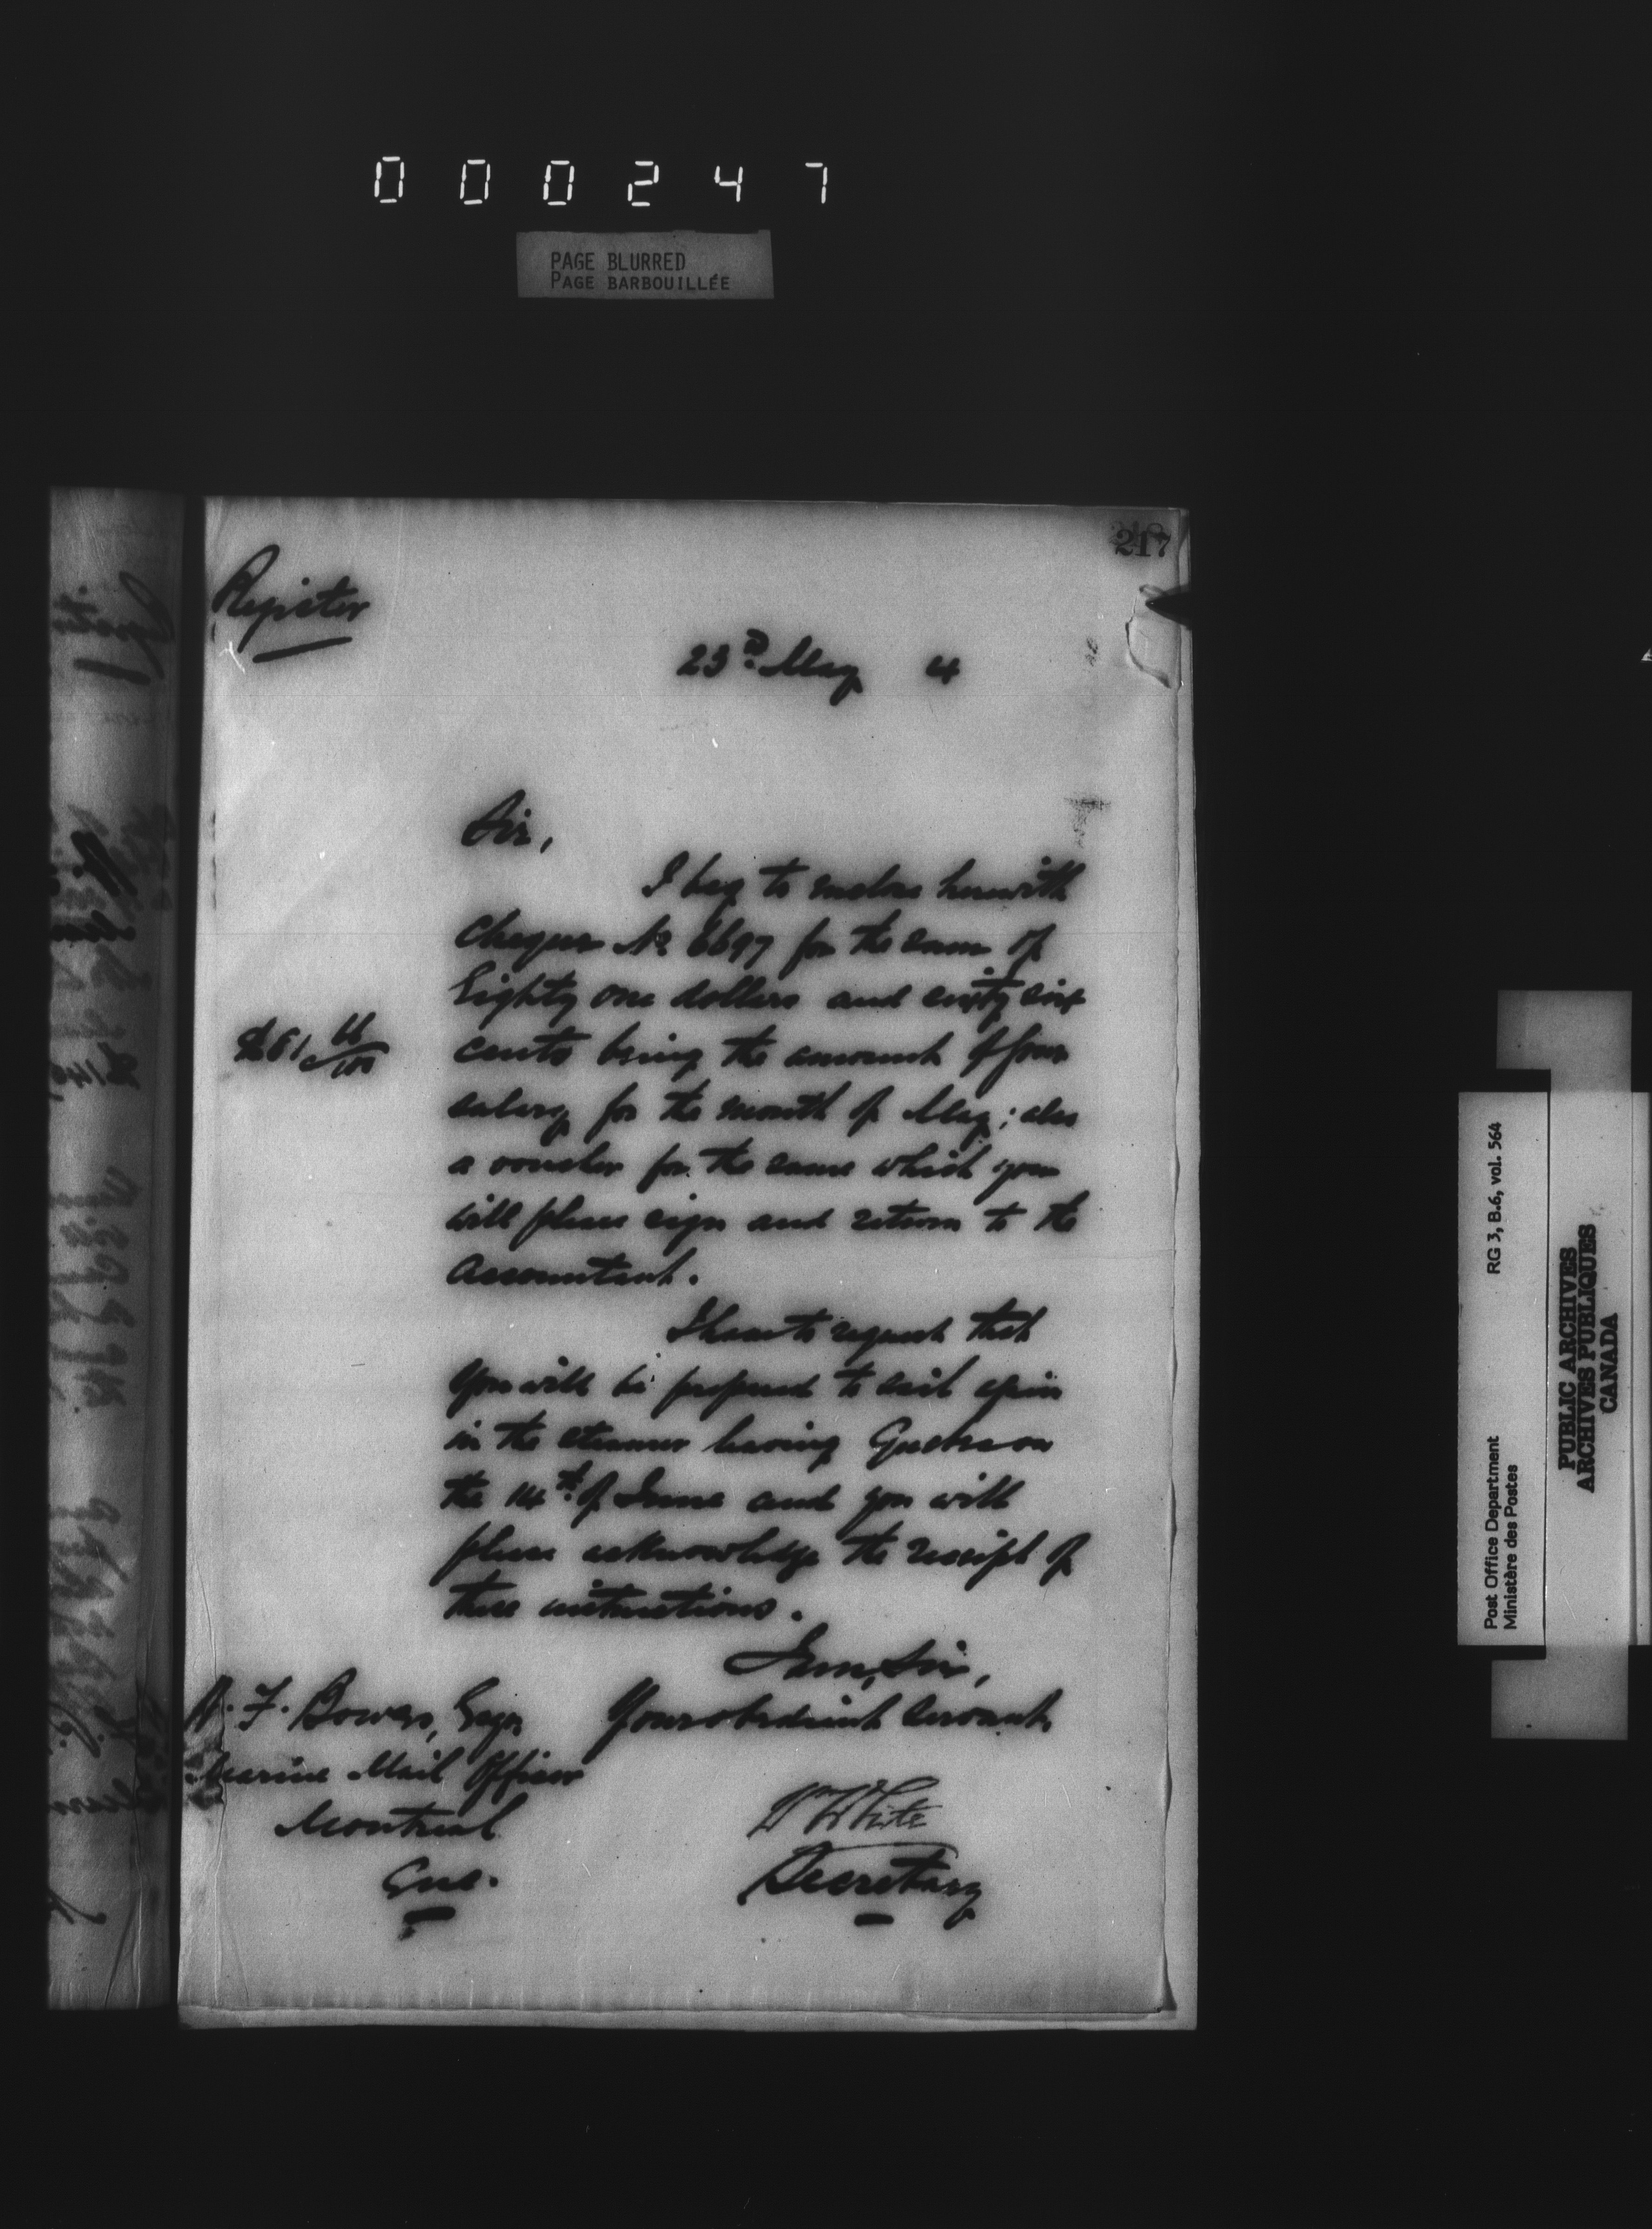 000247
PAGE BLURRED
PAGE BARBOUILLÉE
217
Register
23rd May 4
Sir,
I beg to enclose herewith
cheque No 6697 for the sum of
Eighty one dollars and sixty six
$81 66/100
cents being the amount of your
salary for the month of May; also
a voucher for the same which you
will please sign and return to the
Accountant.
I have to request that
you will be prepared to sail again
in the steamer leaving Quebec on
the 14th of June and you will
please acknowledge the receipt of
these instructions.
I am, Sir,
Your obedient Servant
F. Bowes, Esqr
Marine Mail Officer
Montreal
Que.
Wm White
Secretary
Post Office Department RG 3, B.6, vol. 564
Ministère des Postes
PUBLIC ARCHIVES
ARCHIVES PUBLIQUES
CANADA